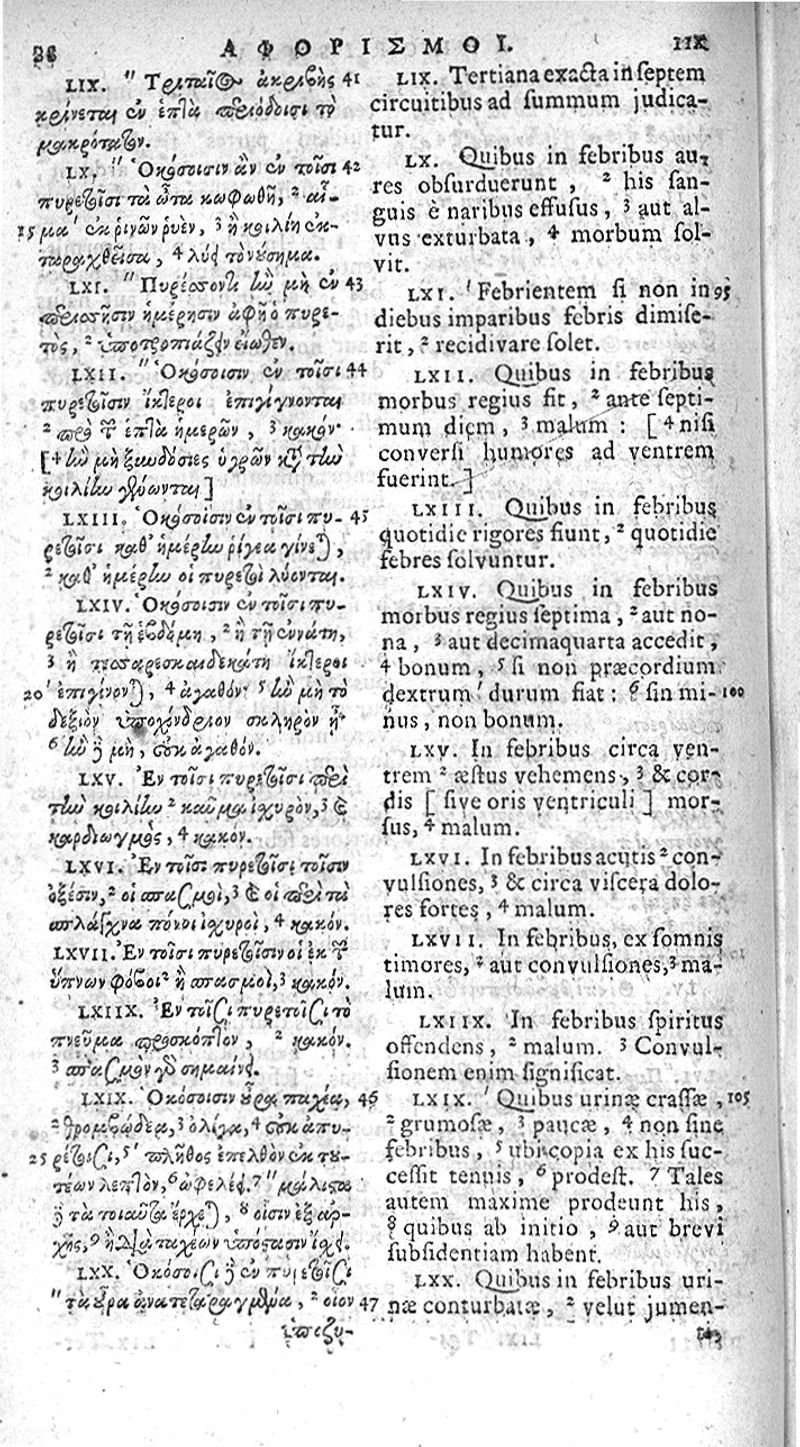 ΑΦΟΡΙΣΜΟΙ.
LIX. " Τριταῖος ἀκριβὴς 41
κρίνεται ἐν ἑπτὰ περιόδοισι τὸ
μακρότατον.
LX. " Ὁκόσοισιν ἂν ἐν τοῖσι 42
πυρετοῖσι τὰ ὦτα κωφωθῇ, 2 αἷ-
15 μα ' ἐκ ρινῶν ρυὲν, 3 ἢ κοιλίη ἐκ-
ταραχθεῖσα, 4 λύει τὸ νόσημα.
LXI. " Πυρέσσοντι ἢν μὴ ἐν 43
περισσῇσιν ἡμέρῃσιν ἀφῇ ὁ πυρε-
τὸς, 2 ὑποτροπιάζειν εἴωθεν.
LXII. " Ὁκόσοισιν ἐν τοῖσι 44
πυρετοῖσιν ἴκτεροι ἐπιγίγνονται
2 πρὸ τῶν ἑπτὰ ἡμερῶν, 3 κακόν·
[4 ἢν μὴ ξυνδόσιες ὑγρῶν κατὰ τὴν
κοιλίην γένωνται]
LXIII. Ὁκόσοισιν ἐν τοῖσι πυ- 45
ρετοῖσι καθ' ἡμέρην ρίγεα γίνεται,
2 καθ' ἡμέρην οἱ πυρετοὶ λύονται.
LXIV. Ὁκόσοισιν ἐν τοῖσι πυ-
ρετοῖσι τῇ ἑβδόμῃ, 2 ἢ τῇ ἐννάτῃ,
3 ἢ τεσσαρεσκαιδεκάτῃ ἴκτεροι
20 ' ἐπιγίνονται, 4 ἀγαθόν· 5 ἢν μὴ τὸ
δεξιὸν ὑποχόνδριον σκληρὸν ᾖ·
6 ἢν δὲ μὴ, οὐκ ἀγαθόν.
LXV. Ἐν τοῖσι πυρετοῖσι περὶ
τὴν κοιλίην 2 καῦμα ἰσχυρὸν, 3 καὶ
καρδιωγμὸς, 4 κακόν.
LXVI. Ἐν τοῖσι πυρετοῖσι τοῖσιν
ὀξέσιν, 2 οἱ σπασμοὶ, 3 καὶ οἱ περὶ τὰ
σπλάγχνα πόνοι ἰσχυροὶ, 4 κακόν.
LXVII. Ἐν τοῖσι πυρετοῖσιν οἱ ἐκ τῶν
ὕπνων φόβοι 2 ἢ σπασμοὶ, 3 κακόν.
LXIIX. Ἐν τοῖσι πυρετοῖσι τὸ
πνεῦμα προσκόπτον, 2 κακόν.
3 σπασμὸν γὰρ σημαίνει.
LXIX. Ὁκόσοισιν οὖρα παχέα, 46
2 θρομβώδεα, 3 ὀλίγα, 4 οὐκ ἀπυ-
25 ρέτοισι, 5 ' πλῆθος ἐπελθὸν ἐκ του-
τέων λεπτὸν, 6 ὠφελέει. 7 " μάλιστα
δὲ τὰ τοιαῦτα ἔρχεται, 8 οἷσιν ἐξ ἀρ-
χῆς, 9 ἢ διὰ ταχέων ὑπόστασιν ἴσχει.
LXX. Ὁκόσοισι δὲ ἐν πυρετοῖσι
" τὰ οὖρα ἀνατεταραγμένα, 2 οἷον 47
ὑποζυ-
LIX. Tertiana exacta in septem
circuitibus ad summum judica-
tur.
LX. Quibus in febribus au-
res obsurduerunt, 2 his san-
guis è naribus effusus, 3 aut al-
vus exturbata, 4 morbum sol-
vit.
LXI. ' Febrientem si non in 95
diebus imparibus febris dimise-
rit, 2 recidivare solet.
LXII. Quibus in febribus
morbus regius fit, 2 ante septi-
mum diem, 3 malum: [4 nisi
conversi humores ad ventrem
fuerint.]
LXIII. Quibus in febribus
quotidie rigores fiunt, 2 quotidie
febres solvuntur.
LXIV. Quibus in febribus
morbus regius septima, 2 aut no-
na, 3 aut decimaquarta accedit,
4 bonum, 5 si non præcordium
dextrum ' durum fiat: 6 sin mi- 100
nus, non bonum.
LXV. In febribus circa ven-
trem 2 æstus vehemens, 3 & cor-
dis [ sive oris ventriculi ] mor-
sus, 4 malum.
LXVI. In febribus acutis 2 con-
vulsiones, 3 & circa viscera dolo-
res fortes, 4 malum.
LXVII. In febribus, ex somnis
timores, 2 aut convulsiones, 3 ma-
lum.
LXIIX. In febribus spiritus
offendens, 2 malum. 3 Convul-
sionem enim significat.
LXIX. ' Quibus urinæ crassæ, 105
2 grumosæ, 3 paucæ, 4 non sine
febribus, 5 ubi copia ex his suc-
cessit tenuis, 6 prodest. 7 Tales
autem maxime prodeunt his,
8 quibus ab initio, 9 aut brevi
subsidentiam habent.
LXX. Quibus in febribus uri-
næ conturbatæ, 2 velut jumen-